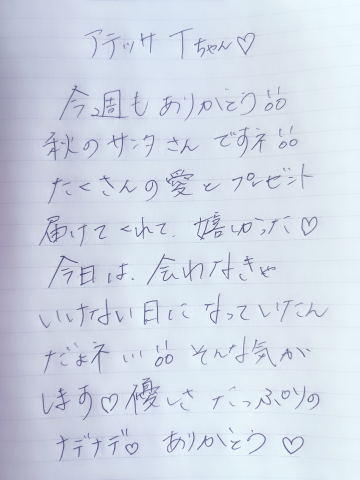 アテッサ Tちゃん♡
今週も ありがとう!!
秋のサンタさん ですネ!!
たくさんの愛と プレゼント
届けてくれて、嬉しかった♡
今日は、会わなきゃ
いけない日に なっていたん
だよネ!!! そんな気が
します♡優しさ たっぷりの
ナデナデ♡ ありがとう♡